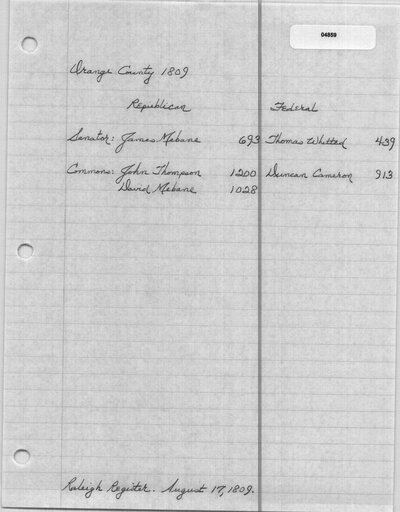 04859
Orange County 1809
Republican Federal
Senator: James Mebane 693 Thomas Whitted 439
Commons: John Thompson 1200 Duncan Cameron 913
David Mebane 1028
Raleigh Register. August 17, 1809.